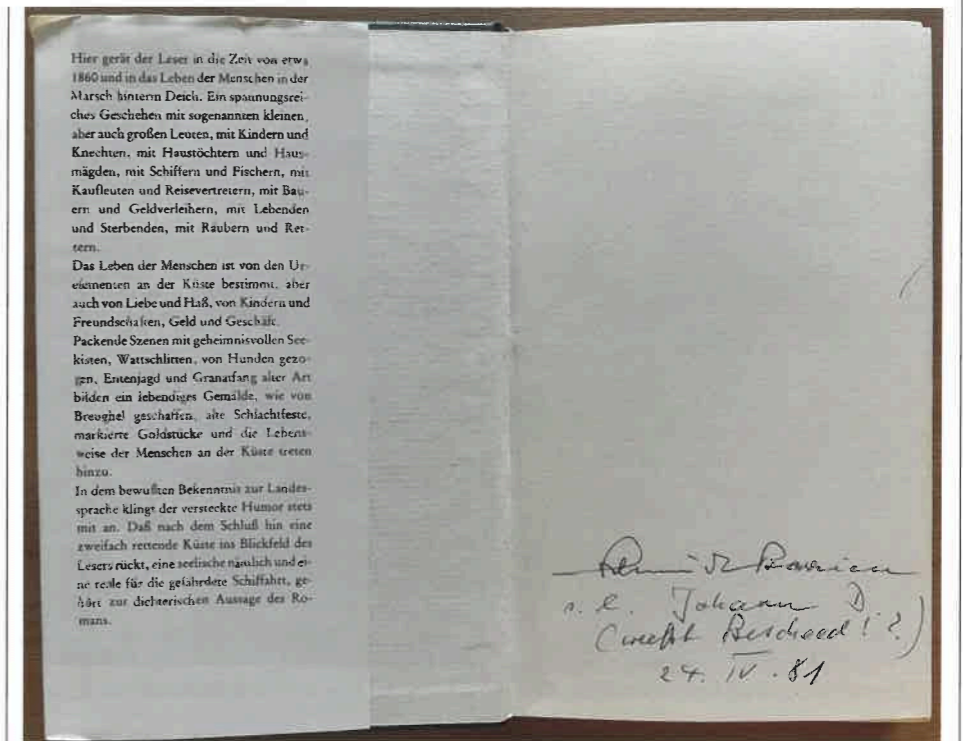 Hier gerät der Leser in die Zeit von etwa
1860 und in das Leben der Menschen in der
Marsch hinterm Deich. Ein spannungsrei-
ches Geschehen mit sogenannten kleinen,
aber auch großen Leuten, mit Kindern und
Knechten, mit Haustöchtern und Haus-
mägden, mit Schiffern und Fischern, mit
Kaufleuten und Reisevertretern, mit Bau-
ern und Geldverleihern, mit Lebenden
und Sterbenden, mit Räubern und Ret-
tern.
Das Leben der Menschen ist von den Ur-
elementen an der Küste bestimmt, aber
auch von Liebe und Haß, von Kindern und
Freundschaften, Geld und Geschäft.
Packende Szenen mit geheimnisvollen See-
kisten, Wattschlitten, von Hunden gezo-
gen, Entenjagd und Granatfang alter Art
bilden ein lebendiges Gemälde, wie von
Breughel geschaffen, alte Schlachtfeste,
markierte Goldstücke und die Lebens-
weise der Menschen an der Küste treten
hinzu.
In dem bewußten Bekenntnis zur Landes-
sprache klingt der versteckte Humor stets
mit an. Daß nach dem Schluß hin eine
zweifach rettende Küste ins Blickfeld des
Lesers rückt, eine seelische nämlich und ei-
ne reale für die gefährdete Schiffahrt, ge-
hört zur dichterischen Aussage des Ro-
mans.
Johann D.
(weeßt Bescheed!?)
24. IV. 81